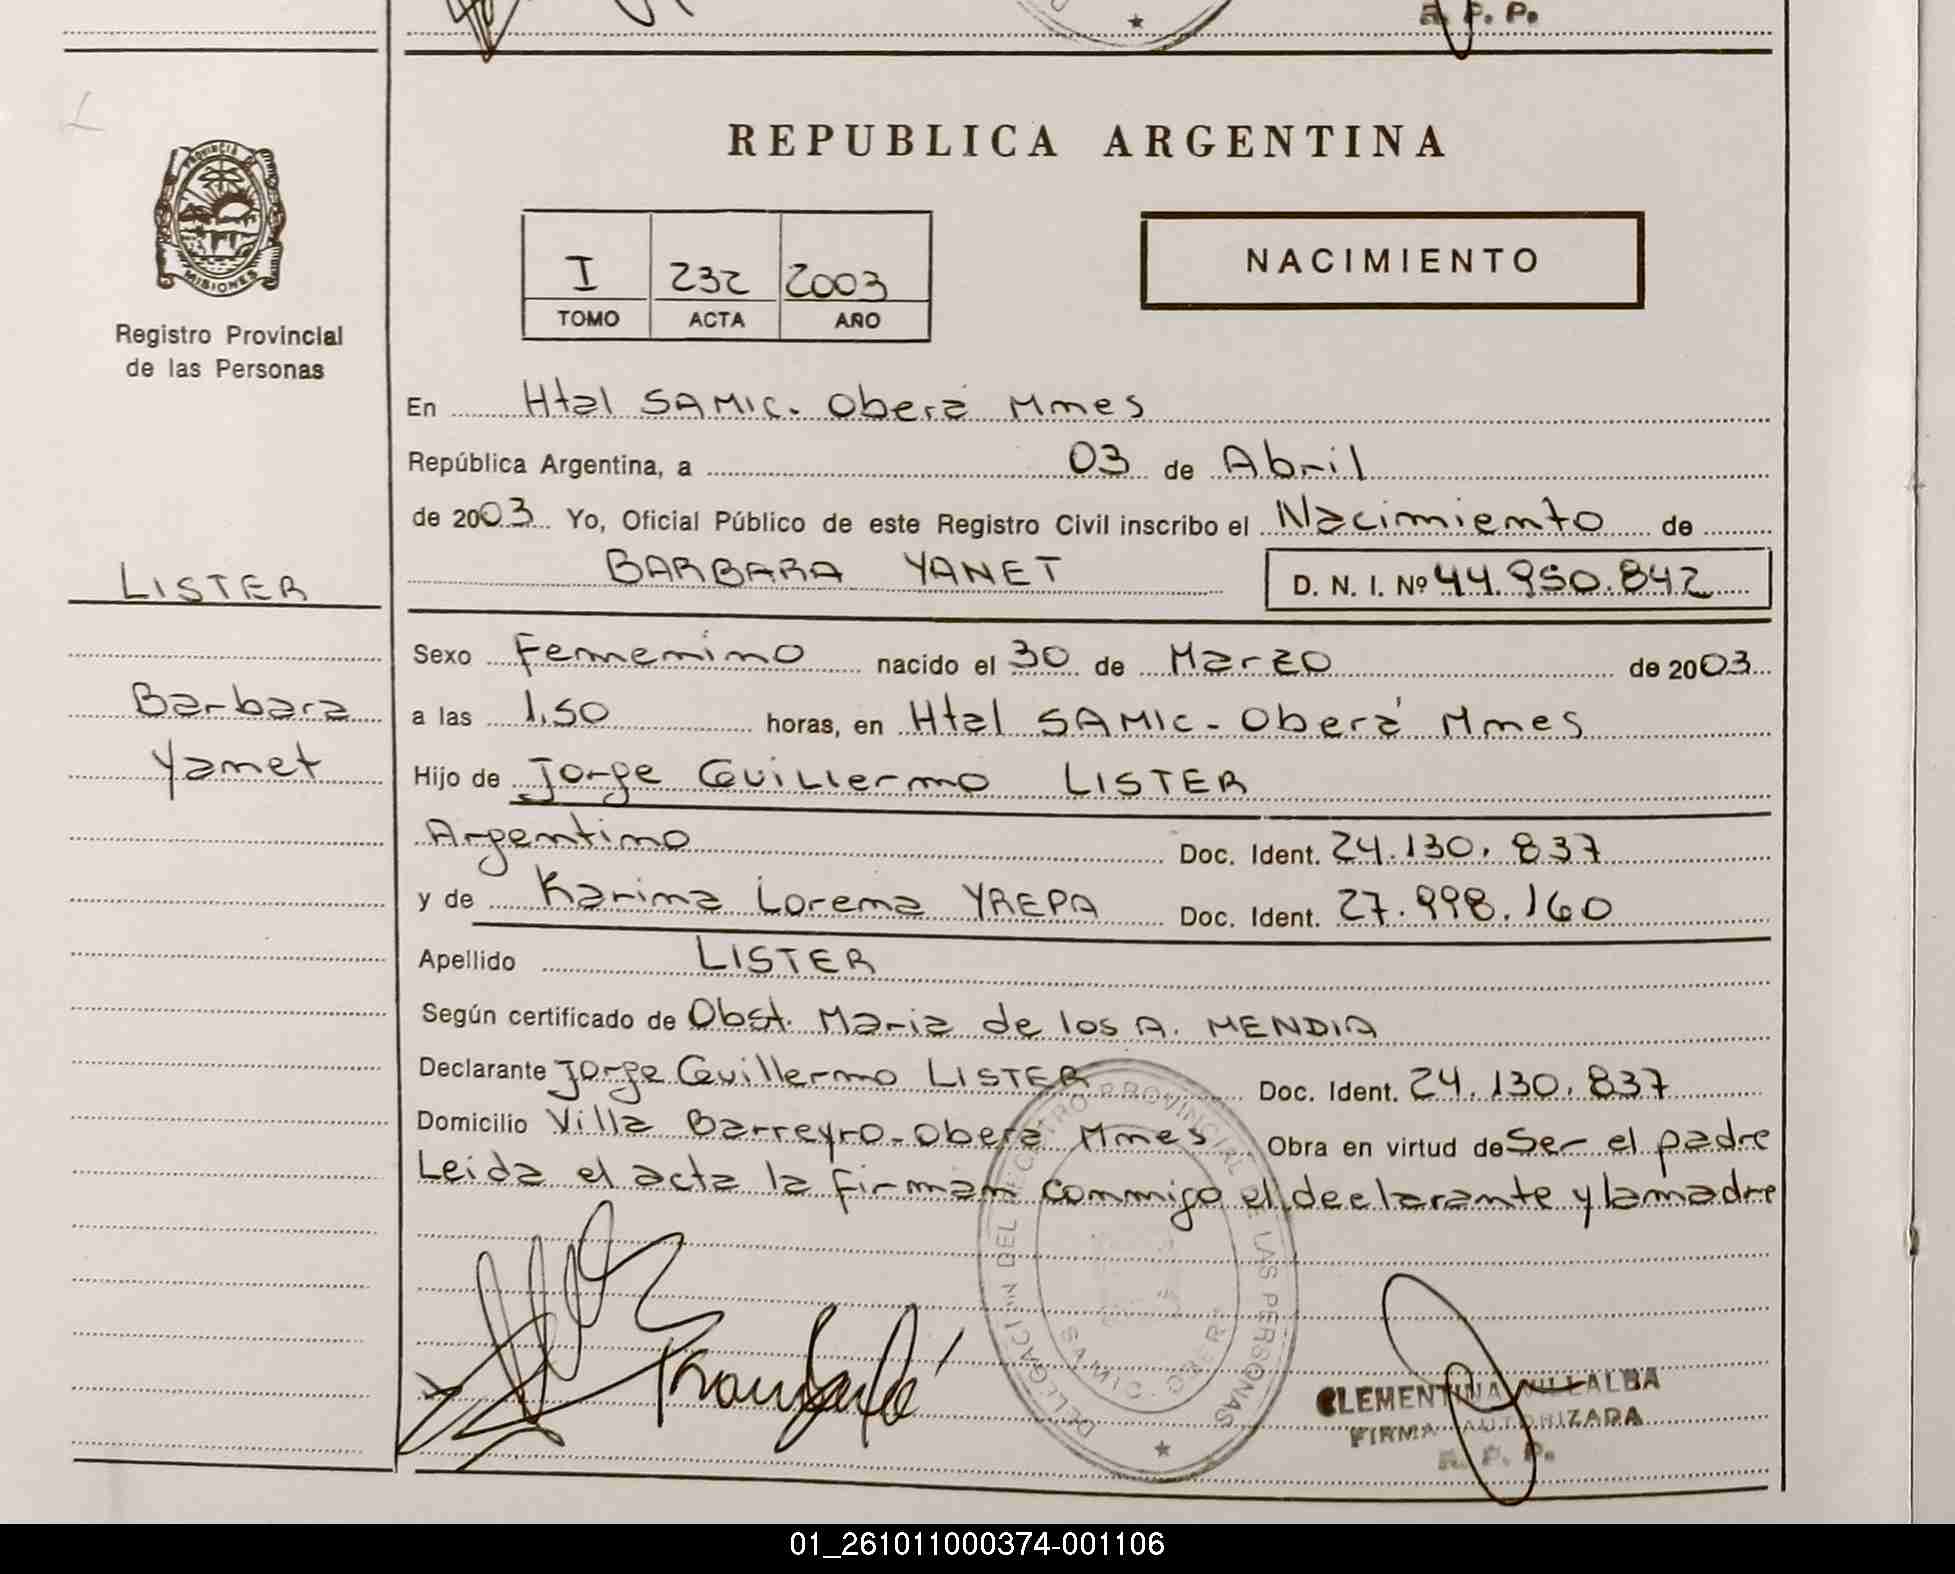 R. P. P.
REPUBLICA ARGENTINA
PROVINCIA DE
MISIONES
Registro Provincial
de las Personas
I 232 2003
TOMO ACTA AÑO
NACIMIENTO
En Htal SAMIC. Oberá Mnes
República Argentina, a 03 de Abril
de 2003 Yo, Oficial Público de este Registro Civil inscribo el Nacimiento de
BARBARA YANET D. N. I. Nº 44.950.842
LISTER
Barbara
Yanet
Sexo Femenino nacido el 30 de Marzo de 2003
a las 1,50 horas, en Htal SAMIC - Oberá Mnes
Hijo de Jorge Guillermo LISTER
Argentino Doc. Ident. 24.130.837
y de Karina Lorena YREPA Doc. Ident. 27.998.160
Apellido LISTER
Según certificado de Obst. Maria de los A. MENDIA
Declarante Jorge Guillermo LISTER Doc. Ident. 24.130.837
Domicilio Villa Barreyro - Oberá Mnes Obra en virtud de Ser el padre
Leida el acta la firman conmigo el declarante y la madre
DELEGACION DEL REGISTRO PROVINCIAL DE LAS PERSONAS
SAMIC. OBERA
CLEMENTINA VILLALBA
FIRMA AUTORIZADA
R. P. P.
01_261011000374-001106